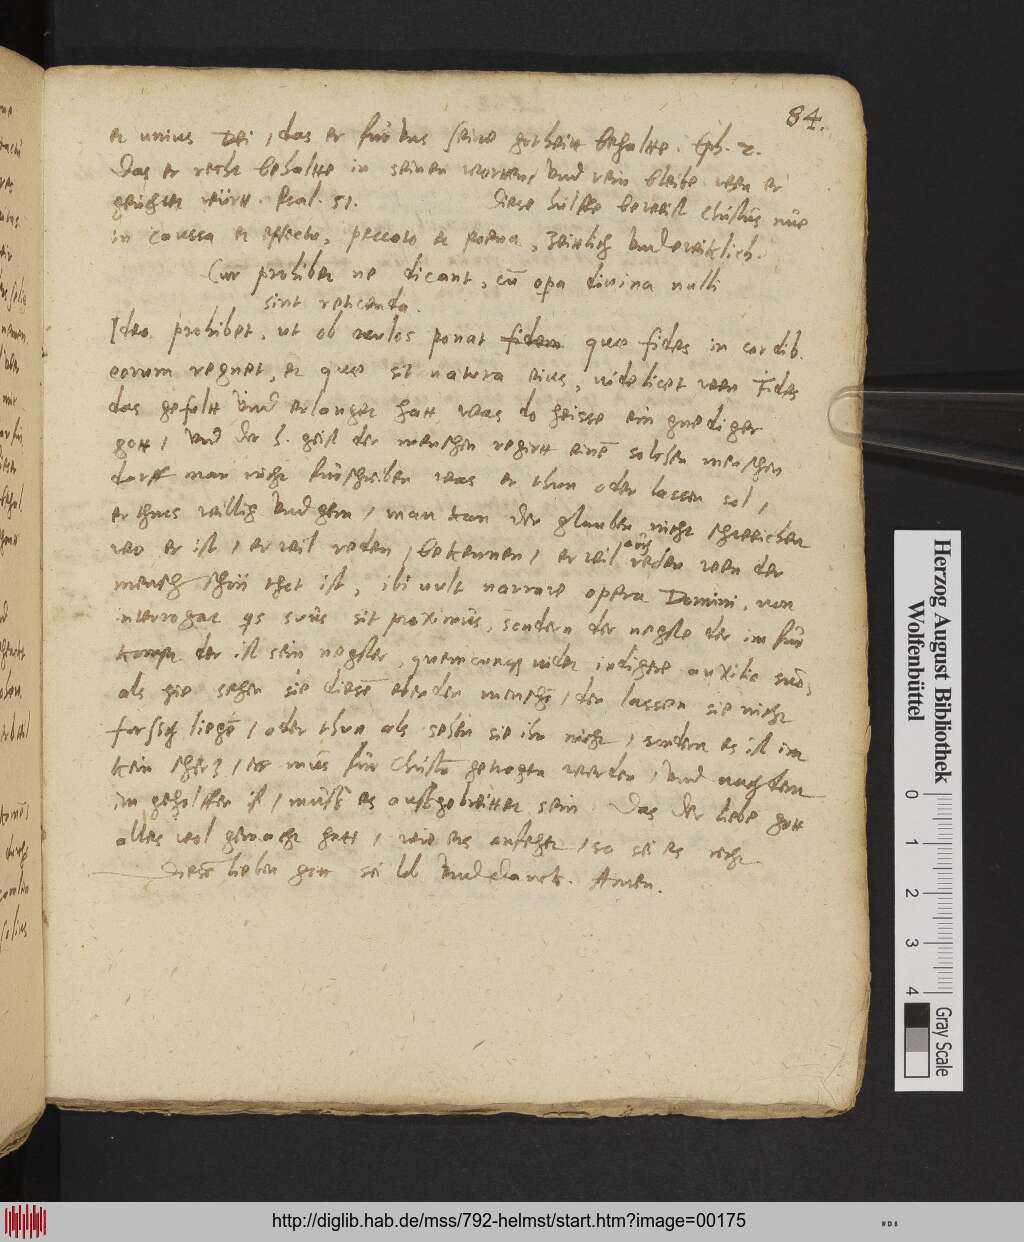 84.
et unius Dei, das er für uns seine gotheitt behaltte. Eph. 2.
Das er recht behaltte in seinen worten, und rein bleibe wen er
gerichtet württ. Psal. 51. Diese hülffe beweist Christus nur
in caussa et effectu, peccato et poena, zeittlich und ewiklich.
Cur prohibet ne dicant, cũ opa divina nulli
sint reticenda.
Ideo prohibet, ut ob oculos ponat fidem que fides in cordib.
eorum regnet, et que sit natura eius, videlicet wen Fides
das gefult und erlanget hatt was do heisse ein gnediger
gott, und der h. geist der menschen regirtt einẽ solchen menschen
darff man nicht fürschreiben was er thun oder lassen sol,
er thuts willig und gern, man kan der glauben nicht schweichen
wo er ist, er wil reden, bekennen, er wil aus reden wen der
mensch schon thot ist, ibi vult narrare opera Domini, non
interrogat qs suus sit proximus, sondern der negste der im für
kompt der ist sein negster, quemcunq videt indigere auxilio suo,
als hie sehen sie diesẽ elenden menschẽ, den lassen sie nicht
liegẽ, oder thun als sehen sie ihn nicht, sondern es ist im
kein schertz, er mus für Christo getragen werden, und nachdem
im geholffen ist, muss es aussgebreittet sein. Das der liebe gott
alles wol gemacht hatt, wie ers ansehet, so sei es recht
Diesẽ lieben gott sei lob und danck. Amen.
Herzog August Bibliothek
Wolfenbüttel
0 1 2 3 4
Gray Scale
http://diglib.hab.de/mss/792-helmst/start.htm?image=00175